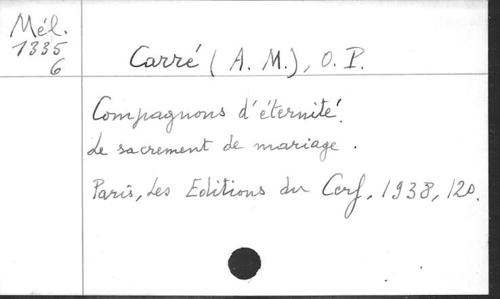 Mél.
1335
6
Carré (A. M.), O. P.
Compagnons d'éternité.
Le sacrement de mariage.
Paris, Les Editions du Cerf, 1938, 120.